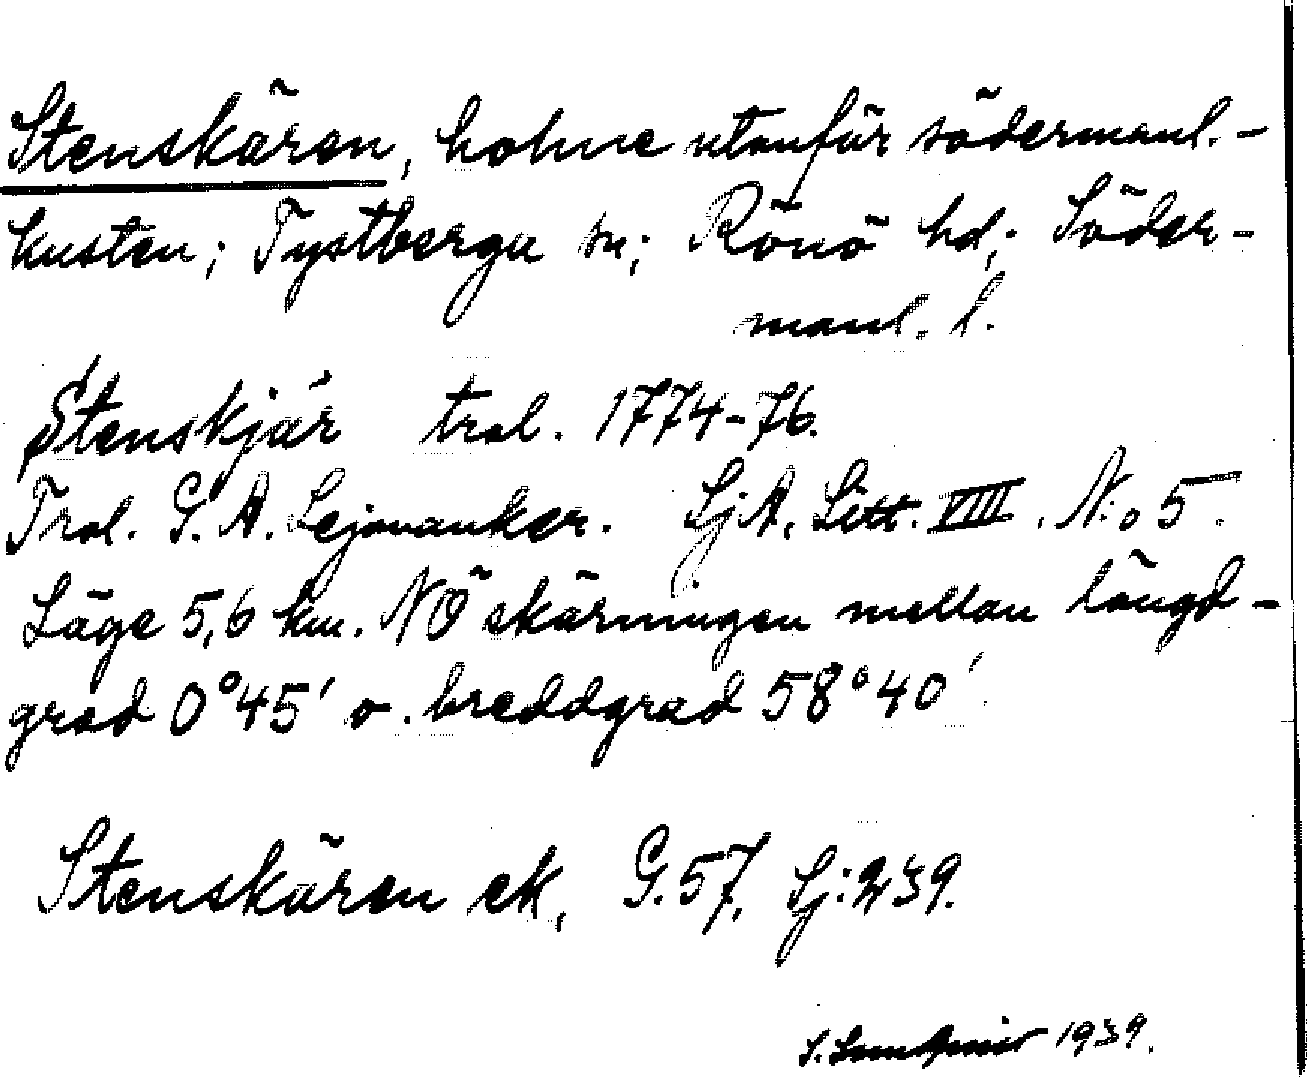 Stenskären, holme utanför södermanl.-
kusten; Tystberga sn; Rönö hd; Söder-
manl. l.
Stenskjär trol. 1774-76.
Trol. G. A. Lejonanker. SjA, Litt. VIII. N:o 5.
Läge 5,6 km. NÖ skärningen mellan längd-
grad 0°45' o. breddgrad 58°40'
Stenskären ek, G. 57, Sj: 239.
1939.